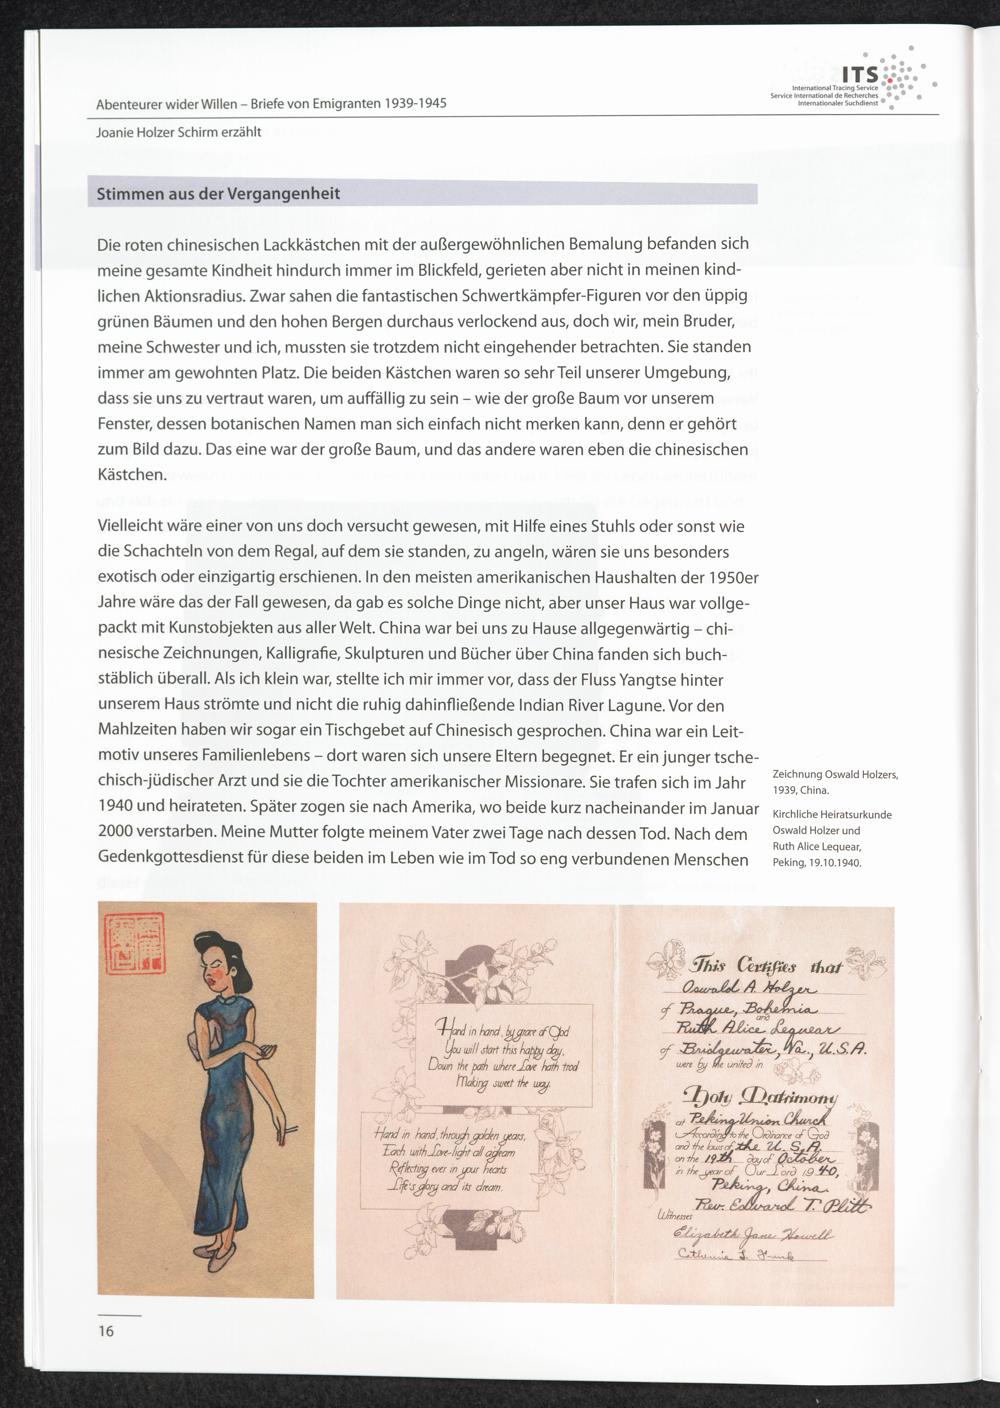 Abenteurer wider Willen – Briefe von Emigranten 1939-1945
ITS
International Tracing Service
Service International de Recherches
Internationaler Suchdienst
Joanie Holzer Schirm erzählt
Stimmen aus der Vergangenheit
Die roten chinesischen Lackkästchen mit der außergewöhnlichen Bemalung befanden sich
meine gesamte Kindheit hindurch immer im Blickfeld, gerieten aber nicht in meinen kind-
lichen Aktionsradius. Zwar sahen die fantastischen Schwertkämpfer-Figuren vor den üppig
grünen Bäumen und den hohen Bergen durchaus verlockend aus, doch wir, mein Bruder,
meine Schwester und ich, mussten sie trotzdem nicht eingehender betrachten. Sie standen
immer am gewohnten Platz. Die beiden Kästchen waren so sehr Teil unserer Umgebung,
dass sie uns zu vertraut waren, um auffällig zu sein – wie der große Baum vor unserem
Fenster, dessen botanischen Namen man sich einfach nicht merken kann, denn er gehört
zum Bild dazu. Das eine war der große Baum, und das andere waren eben die chinesischen
Kästchen.
Vielleicht wäre einer von uns doch versucht gewesen, mit Hilfe eines Stuhls oder sonst wie
die Schachteln von dem Regal, auf dem sie standen, zu angeln, wären sie uns besonders
exotisch oder einzigartig erschienen. In den meisten amerikanischen Haushalten der 1950er
Jahre wäre das der Fall gewesen, da gab es solche Dinge nicht, aber unser Haus war vollge-
packt mit Kunstobjekten aus aller Welt. China war bei uns zu Hause allgegenwärtig – chi-
nesische Zeichnungen, Kalligrafie, Skulpturen und Bücher über China fanden sich buch-
stäblich überall. Als ich klein war, stellte ich mir immer vor, dass der Fluss Yangtse hinter
unserem Haus strömte und nicht die ruhig dahinfließende Indian River Lagune. Vor den
Mahlzeiten haben wir sogar ein Tischgebet auf Chinesisch gesprochen. China war ein Leit-
motiv unseres Familienlebens – dort waren sich unsere Eltern begegnet. Er ein junger tsche-
chisch-jüdischer Arzt und sie die Tochter amerikanischer Missionare. Sie trafen sich im Jahr
1940 und heirateten. Später zogen sie nach Amerika, wo beide kurz nacheinander im Januar
2000 verstarben. Meine Mutter folgte meinem Vater zwei Tage nach dessen Tod. Nach dem
Gedenkgottesdienst für diese beiden im Leben wie im Tod so eng verbundenen Menschen
Zeichnung Oswald Holzers,
1939, China.
Kirchliche Heiratsurkunde
Oswald Holzer und
Ruth Alice Lequear,
Peking, 19.10.1940.
Hand in hand, by grace of God
You will start this happy day,
Down the path where Love hath trod
Making sweet the way.
Hand in hand, through golden years,
Each with Love-light all agleam
Reflecting ever in your hearts
Life's glory and its dream.
This Certifies that
Oswald A. Holzer
of Prague, Bohemia
and
Ruth Alice Lequear
of Bridgewater, Va., U.S.A.
were by me united in
Holy Matrimony
at Peking Union Church
According to the Ordinance of God
and the laws of the U.S.A.
on the 19th day of October
in the year of Our Lord 1940,
Peking, China.
Rev. Edward T. Plitt
Witnesses
Elizabeth Jane Howell
16